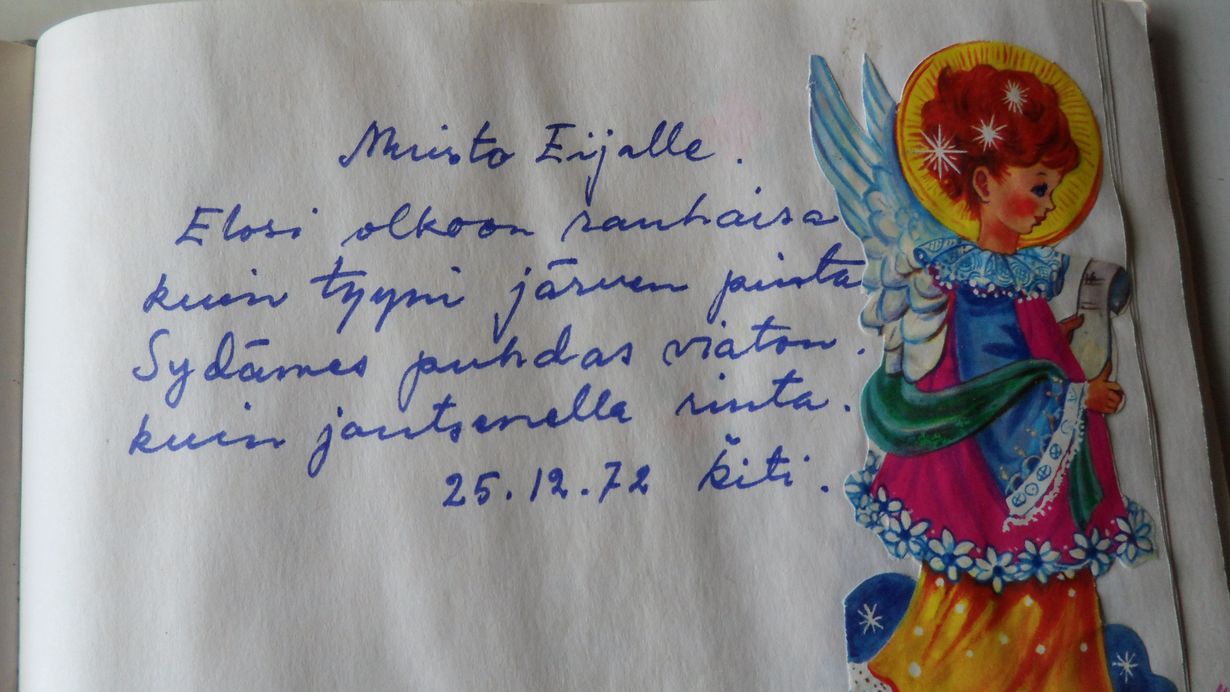 Muisto Eijalle.
Elosi olkoon rauhaisa
kuin tyyni järven pinta
Sydämes puhdas viaton.
kuin joutsenella rinta.
25.12.72 Kiti.